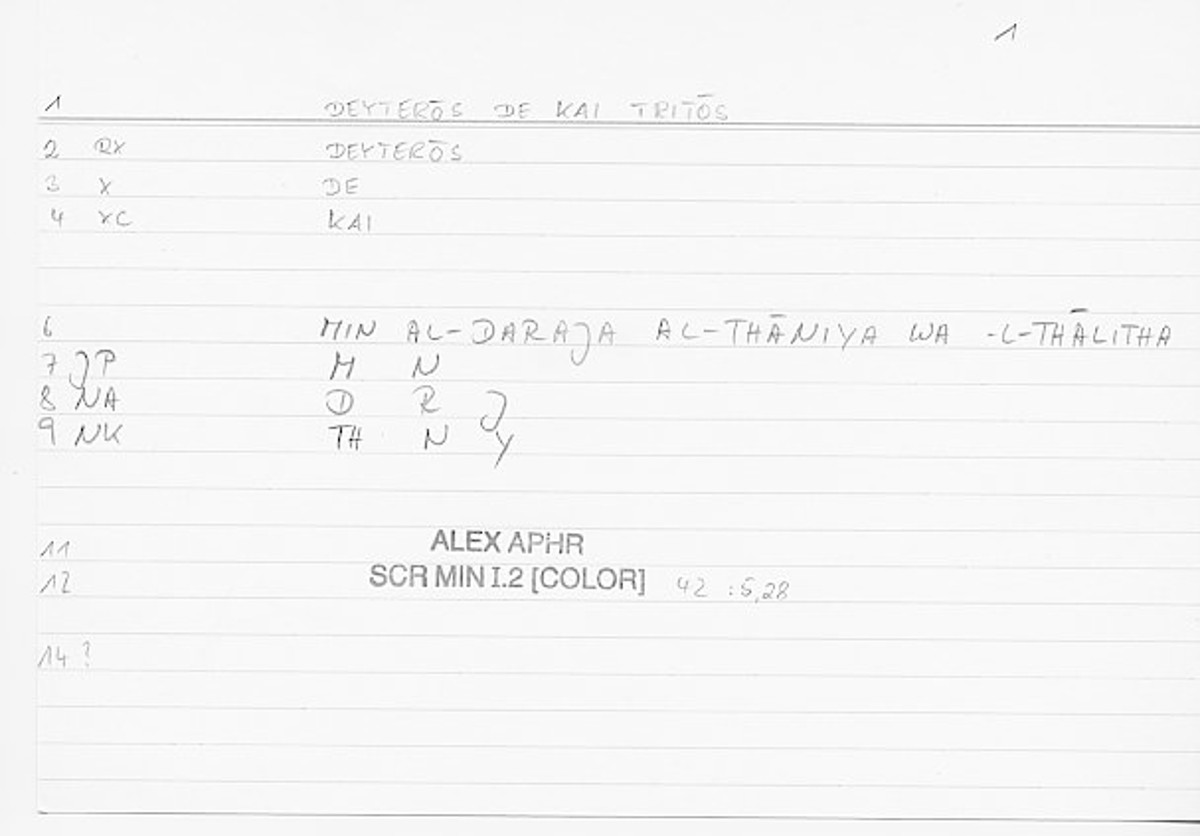 1
1 DEYTERŌS DE KAI TRITŌS
2 RX DEYTERŌS
3 X DE
4 XC KAI
6 MIN AL-DARAJA AL-THĀNIYA WA -L-THĀLITHA
7 JP M N
8 NA D R J
9 NK TH N Y
11 ALEX APHR
12 SCR MIN I.2 [COLOR] 42 :5,28
14 ?